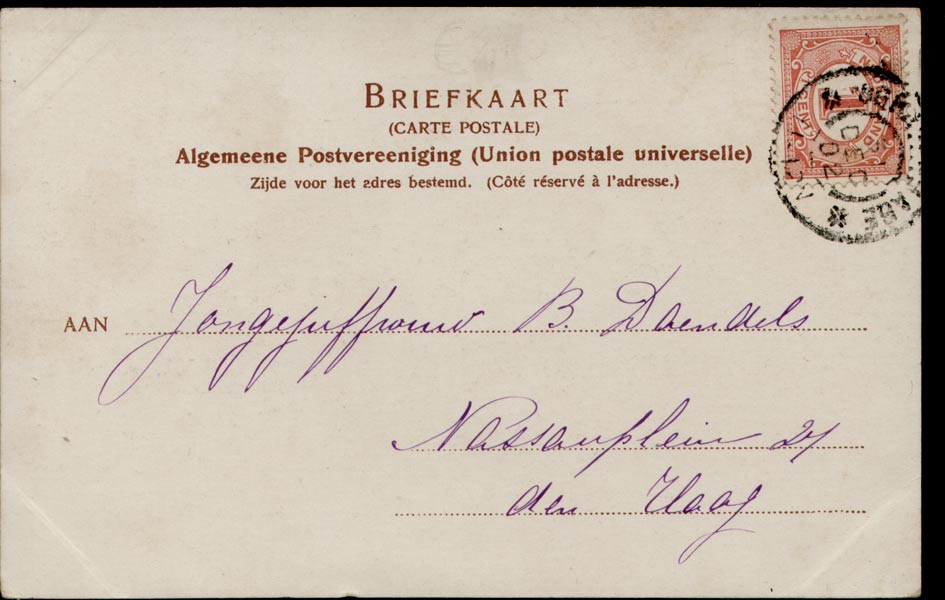 BRIEFKAART
(CARTE POSTALE)
Algemeene Postvereeniging (Union postale universelle)
Zijde voor het adres bestemd. (Côté réservé à l'adresse.)
AAN Jongejuffrouw B. Daendels
Nassauplein 21
den Haag
1
CENT
DEC
02